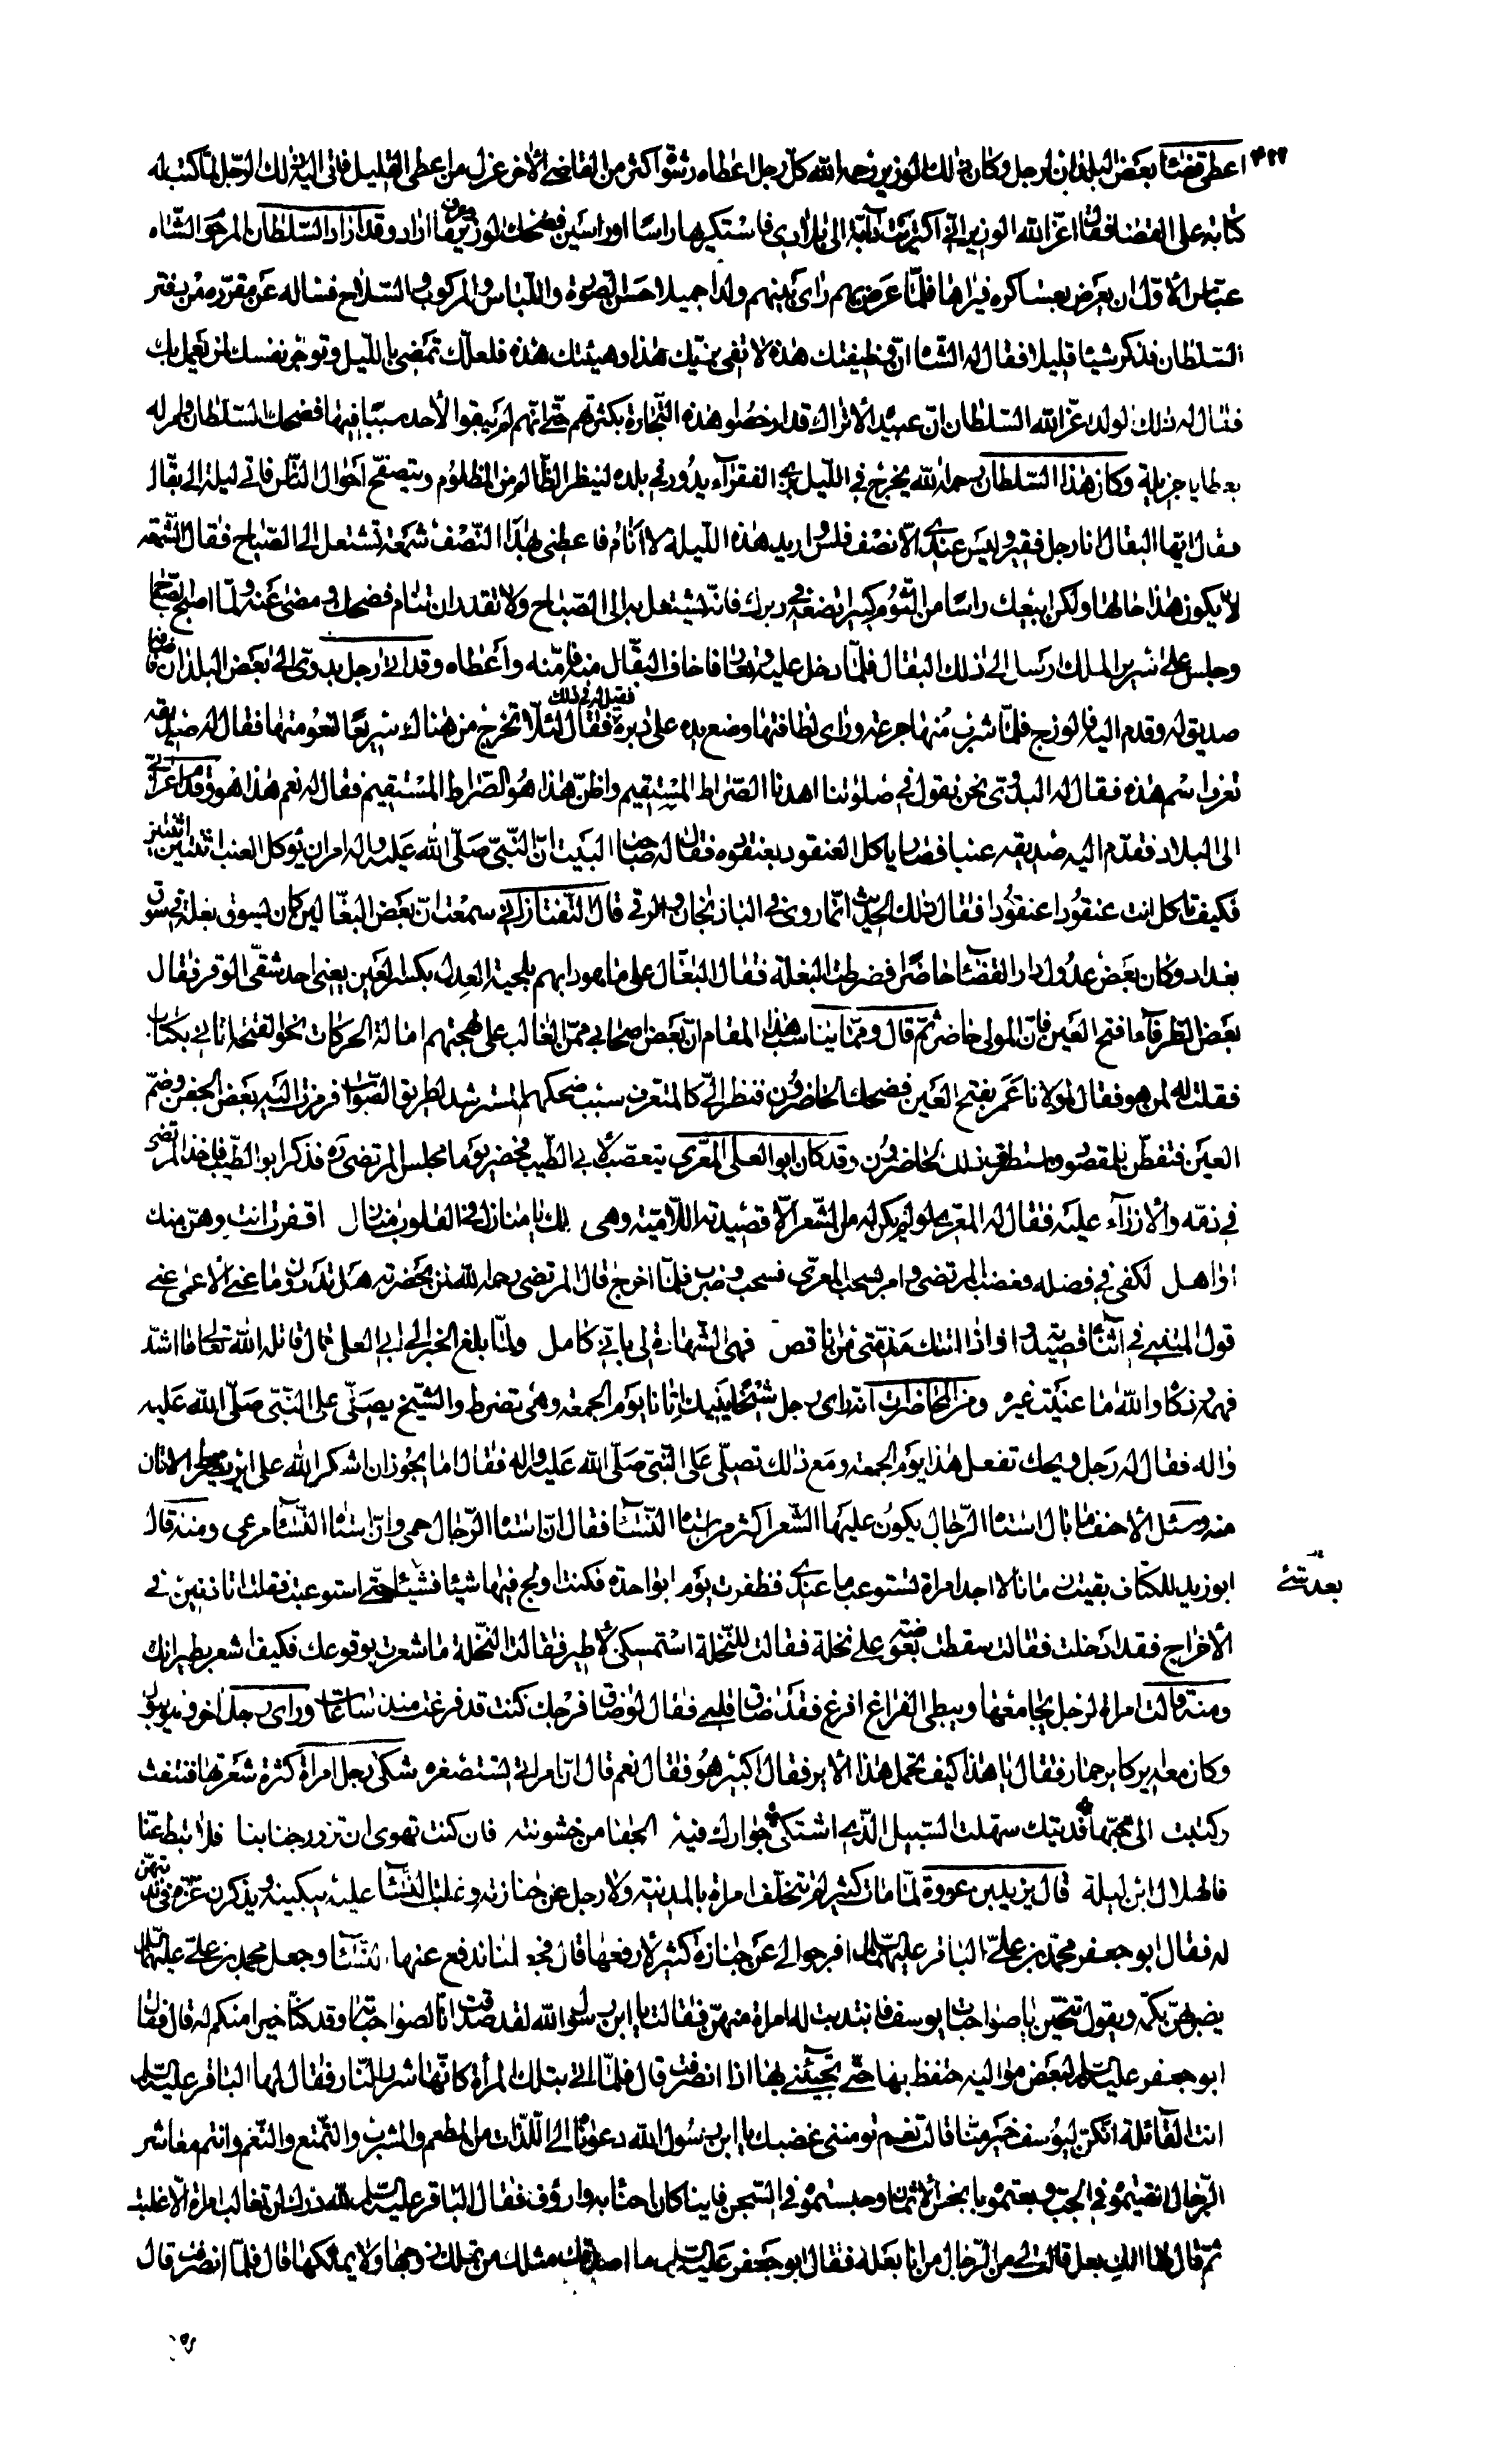 ٣٢٢ اعطى قضاء بعض البلدان لرجل وكان ذلك الوزير رحمه الله كل رجل اعطاه رشوا اكثر من القاضي الأخر عزل من اعطى القليل فاتى اليه ذلك الرجل لما كتب له
كتابة على القضا فقال اعز الله الوزير اني اكتريت دآبة الى بلادي فاستكريها راسا او راسين فضحك الوزير وعرف ما اراد وقد اراد السلطان المرحوم الشاه
عباس الأول ان يعرض بعساكره فيراها فلما عرض بهم راى بينهم ولدا جميلا حسن الصورة واللباس والمركوب والسلاح فساله عن مقرره من دفتر
السلطان فذكر شيئا قليلا فقال له الشاه ان وظيفتك هذه لا تفي بزيك هذا وهيئتك هذه فلعلك تمضي بالليل وتوجر نفسك لمن يعمل بك
فقال له ذلك الولد عز الله السلطان ان عبيد الأتراك قد ارخصوا هذه التجارة بكثرتهم حتى انهم لم يبقوا لأحد سببا فيها فضحك السلطان وامر له
بعطايا جزيلة وكان هذا السلطان رحمه الله يخرج في الليل بزي الفقرآء يدور في بلده لينظر الظالم من المظلوم ويتصفح احوال الناس فاتى ليلة الى بقال
فقال ايها البقال انا رجل فقير وليس عندي الا نصف فلس واريد هذه الليلة لا انام فاعطني بهذا النصف شمعة تشتعل الى الصباح فقال الشمعة
لا يكون هذا حالها ولكن ابيعك راسا من الثوم كبيرا تضعه في دبرك فانه يشتعل به الى الصباح ولا تقدر ان تنام فضحك ومضى عنه ولما اصبح الصباح
وجلس على سرير الملك ارسل الى ذلك البقال فلما دخل عليه وتعالى فاخاف البقال منه فامنه واعطاه وقد اتى رجل بدوي الى بعض البلدان
صديق له وقدم اليه فالوزج فلما شرب منها جرعة وراى لطافتها وضع يده على دبره فقيل له في ذلك فقال لئلا تخرج من هناك سريعا لنعومتها فقال له صديقه
تعرف اسم هذه فقال له البدوي نحن نقول في صلوتنا اهدنا الصراط المستقيم واظن هذا هو الصراط المستقيم فقال له نعم هذا هو وقدم اعرابي
الى البلاد فقدم اليه صديقه عنبا فصار ياكل العنقود بعنقوده فقال له صاحب البيت ان النبي صلى الله عليه واله امر ان يؤكل العنب اثنتين اثنتين
فكيف تاكل انت عنقودا عنقودا فقال ذلك الحديث انما روي في الباذنجان والرقي قال التفتازاني سمعت ان بعض البغالين كان يسوق بغلة في سوق
بغداد وكان بعض عدول دار القضآء حاضرا فضرطت البغلة فقال البغال على ما هو دابهم بلحية العدل بكسر العين يعني احد شقي الوقر فقال
بعض الظرفآء ما فتح العين فان المولى حاضر ثم قال ومما يناسب هذا المقام ان بعض اصحابي ممن الغالب على لهجتهم امالة الحركات نحو الفتحة اتاني بكتاب
فقلت له لمن هو فقال لمولانا عمر بفتح العين فضحك الحاضرون فنظر الي كالمتعرف سبب ضحكهم المسترشد لطريق الصواب فرمزت اليه بغض الجفن وضم
العين فتفطن للمقصود واستظرف ذلك الحاضرون وقد كان ابو العلى المعري يتعصب لأبي الطيب فحضر يوما مجلس المرتضى ره فذكر ابو الطيب فاخذ المرتضى
في ذمه والازرآء عليه فقال له المعري لو لم يكن له من الشعر الا قصيدته اللامية وهي لك يا منازل في القلوب منازل اقفرت انت وهن منك
اواهل لكفى في فضله فغضب المرتضى وامر بسحب المعري فسحب وضرب فلما اخرج قال المرتضى رحمه الله لمن بحضرته هل تدرون ما عنى الاعمى عنى
قول المتنبي في اثنآء قصيدته واذا اتتك مذمتي من ناقص فهي الشهادة لي باني كامل ولما بلغ الخبر الى ابي العلى قال قاتله الله تعالى ما اشد
فهمه وذكاه والله ما عنيت غيره ومن المحاضرات انه راى رجل شيخا ينيك اتانا يوم الجمعة وهي تضرط والشيخ يصلي على النبي صلى الله عليه
واله فقال له رجل ويحك تفعل هذا يوم الجمعة ومع ذلك تصلي على النبي صلى الله عليه واله فقال اما يجوز ان اشكر الله على اير يضرط الاتان
منه وسئل الأحنف ما بال استاه الرجال يكون عليها الشعر اكثر من استاه النسآء فقال ان استاه الرجال حمى وان استاه النسآء مرعى ومنه قال
ابو زيد للكتاف بقيت زمانا لا اجد امراة تستوعب ما عندي فظفرت يوما بواحدة فكنت اولج فيها شيئا فشيئا حتى استوعبته فقلت اتاذنين في
بعد شئ
الأخراج فقد ادخلت فقالت سقطت بعوضة على نخلة فقالت للنخلة استمسكي لأطير فقالت النخلة ما شعرت بوقوعك فكيف اشعر بطيرانك
ومنه قالت امراة لرجل يجامعها ويبطى الفراغ افرغ فقد ضاق قلبي فقال لو ضاق فرجك كنت قد فرغت منذ ساعات وراى رجل اخر في يده يبول
وكان معه اير كاير حمار فقال يا هذا كيف تحمل هذا الأير فقال اكبير هو فقال نعم قال ان امراتي تستصغره شكى رجل امراة كثرة شعرتها فنتفت
وكتبت الى محبها فديتك سهلت السبيل الذي اشتكى جوارك فيه الحفا من خشونته فان كنت تهوى ان تزور جنابنا فلا تبط عنا
فالهلال ابن ليلة قال يزيد بن عروة لما مات كثير لم تتخلف امراة بالمدينة ولا رجل عن جنازته وغلب النسآء عليه يبكينه ويذكرن عزة في ندبتهن
له فقال ابو جعفر محمد بن علي الباقر عليه السلام افرجوا لي عن جنازة كثير لارفعها قال فجعلنا ندفع عنها النسآء وجعل محمد بن علي عليهما السلام
يضربهن بكمه ويقول تنحين يا صواحبات يوسف فانتدبت له امراة منهن فقالت يا ابن رسول الله لقد صدقت انا لصواحباته وقد كنا خيرا منكم له قال فقال
ابو جعفر عليه السلام لبعض مواليه احتفظ بها حتى تجيئني بها اذا انصرفت قال فلما اتى بتلك المرأة كانها شرر النار فقال لها الباقر عليه السلام
انت القآئلة انكن ليوسف خير منا قالت نعم تؤمنني غضبك يا ابن رسول الله دعوناه الى اللذات من المطعم والمشرب والتمتع والنغم وانتم معاشر
الرجال القيتموه في الجب وبعتموه بابخس الأثمان وحبستموه في السجن فاينا كان احنا به وارؤف فقال الباقر عليه السلام لله درك لن تغالب امراة الا غلبت
ثم قال لها الك بعل قالت لي من الرجال من انا بعله فقال ابو جعفر عليه السلام ما اصدقك مثلك من تملك زوجها ولا يملكها قال فلما انصرفت قال